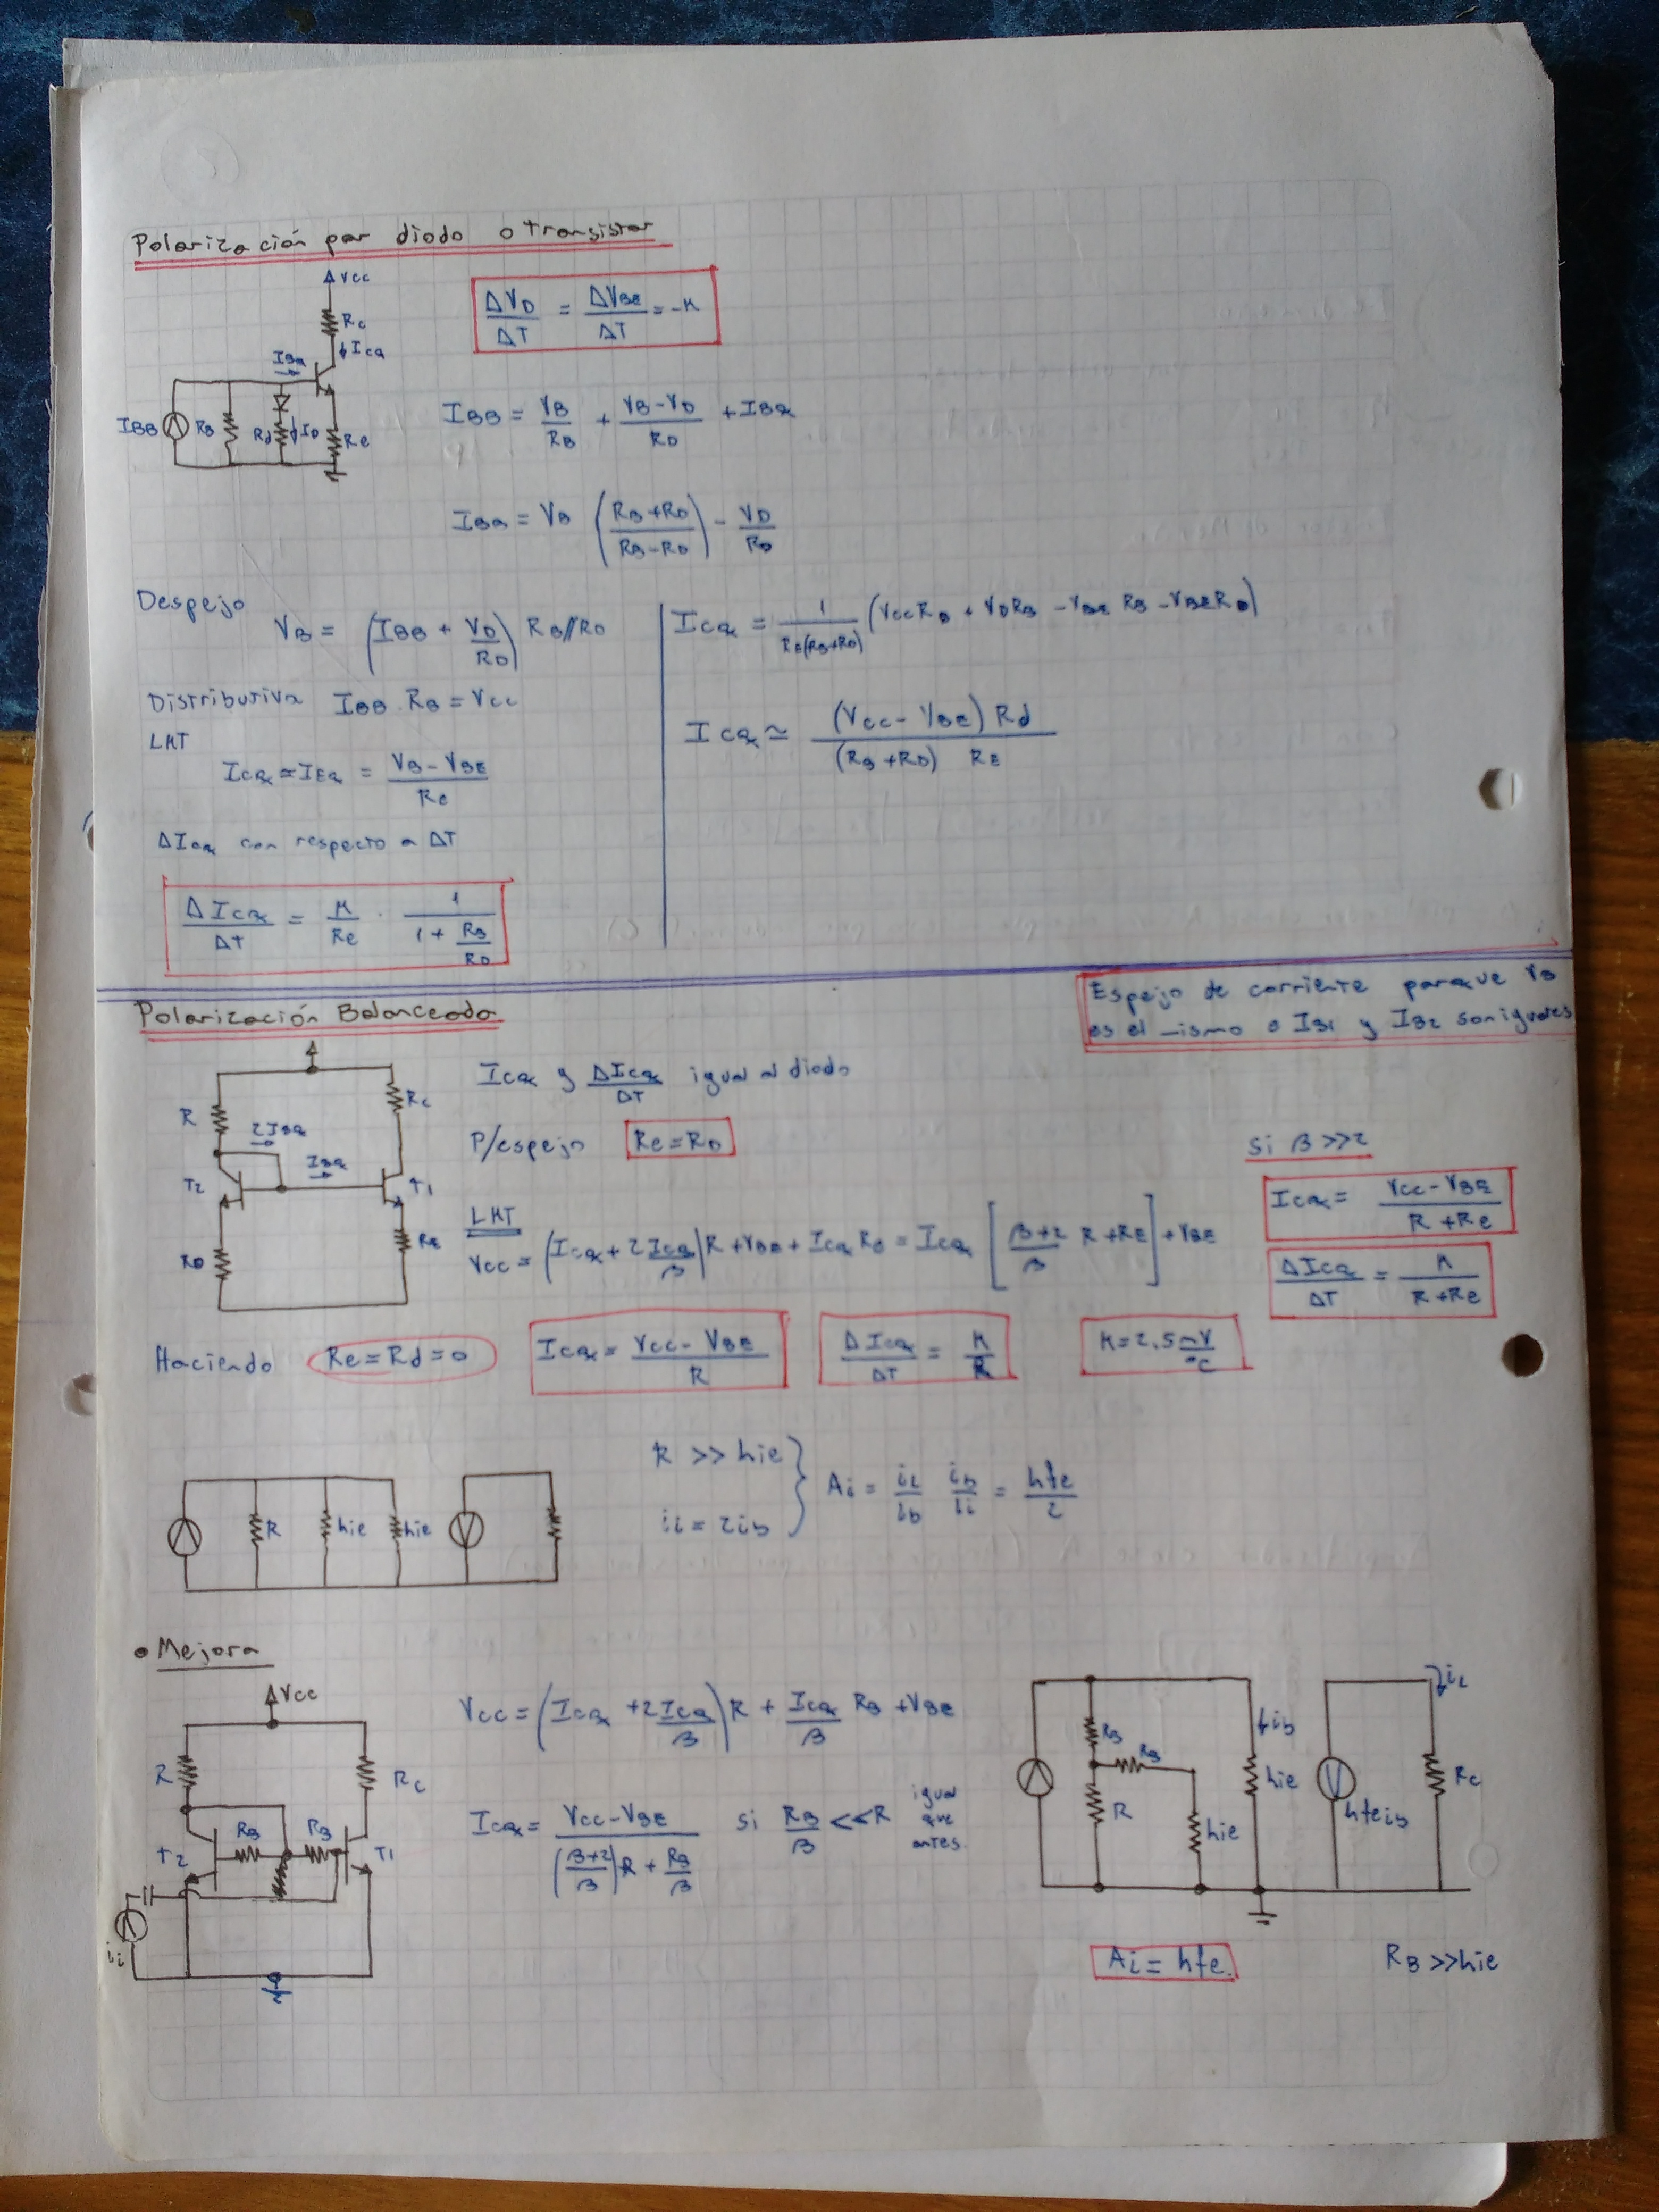 Polarización por diodo o transistor
Vcc
Rc
ICQ
IBQ
IBB RB Rd ID Re
ΔVD/ΔT = ΔVBE/ΔT = -K
IBB = VB/RB + (VB-VD)/RD + IBQ
IBQ = VB ((RB+RD)/(RB-RD)) - VD/RD
Despejo
VB = (IBB + VD/RD) RB//RD
Distributiva IBB.RB = Vcc
LKT
ICQ ≃ IEQ = (VB-VBE)/Re
ΔICQ con respecto a ΔT
ΔICQ/ΔT = K/Re . 1/(1 + RB/RD)
ICQ = 1/(RE(RB+RD)) (Vcc RD + VD RB - VBE RB - VBE RD)
ICQ ≃ (Vcc - VBE) Rd / ((RB+RD) RE)
Espejo de corriente porque VB
es el mismo e IB1 y IB2 son iguales
Polarización Balanceada
R
Rc
2IBQ
IBQ
T2
T1
RD
RE
ICQ y ΔICQ/ΔT igual al diodo
P/espejo Re = RD
LKT
Vcc = (ICQ + 2 ICQ/β) R + VBE + ICQ RD = ICQ [(β+2)/β R + RE] + VBE
Si β >> 2
ICQ = (Vcc - VBE)/(R + Re)
ΔICQ/ΔT = K/(R + Re)
Haciendo Re = Rd = 0
ICQ = (Vcc - VBE)/R
ΔICQ/ΔT = K/R
K = 2.5 mV/°C
R hie hie
R >> hie
ii = 2ib
Ai = iL/ib ib/ii = hfe/2
• Mejora
Vcc
R
Rc
RB RB
T2
T1
ii
Vcc = (ICQ + 2 ICQ/β) R + ICQ/β RB + VBE
ICQ = (Vcc - VBE)/(((β+2)/β) R + RB/β) si RB/β << R igual que antes
iL
RB
RB
R
hie
ib
hie
hfeib
Rc
Ai = hfe.
RB >> hie